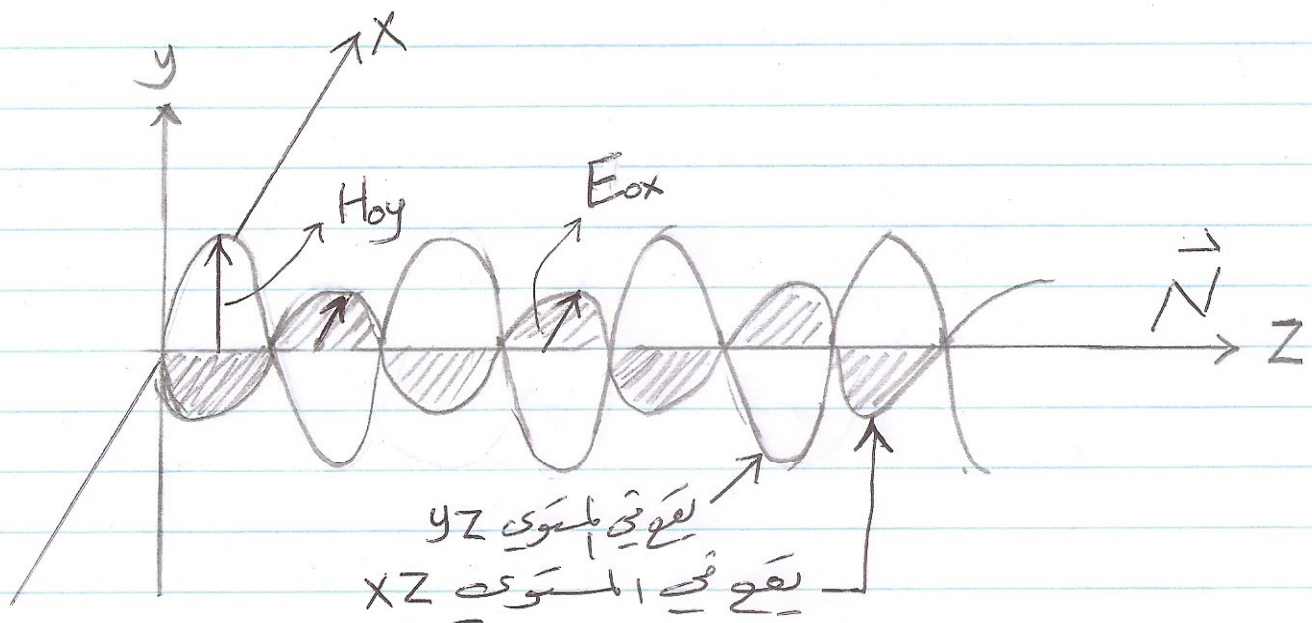 X
y
Hoy
Eox
N
Z
يقع في المستوي yz
يقع في المستوي xz